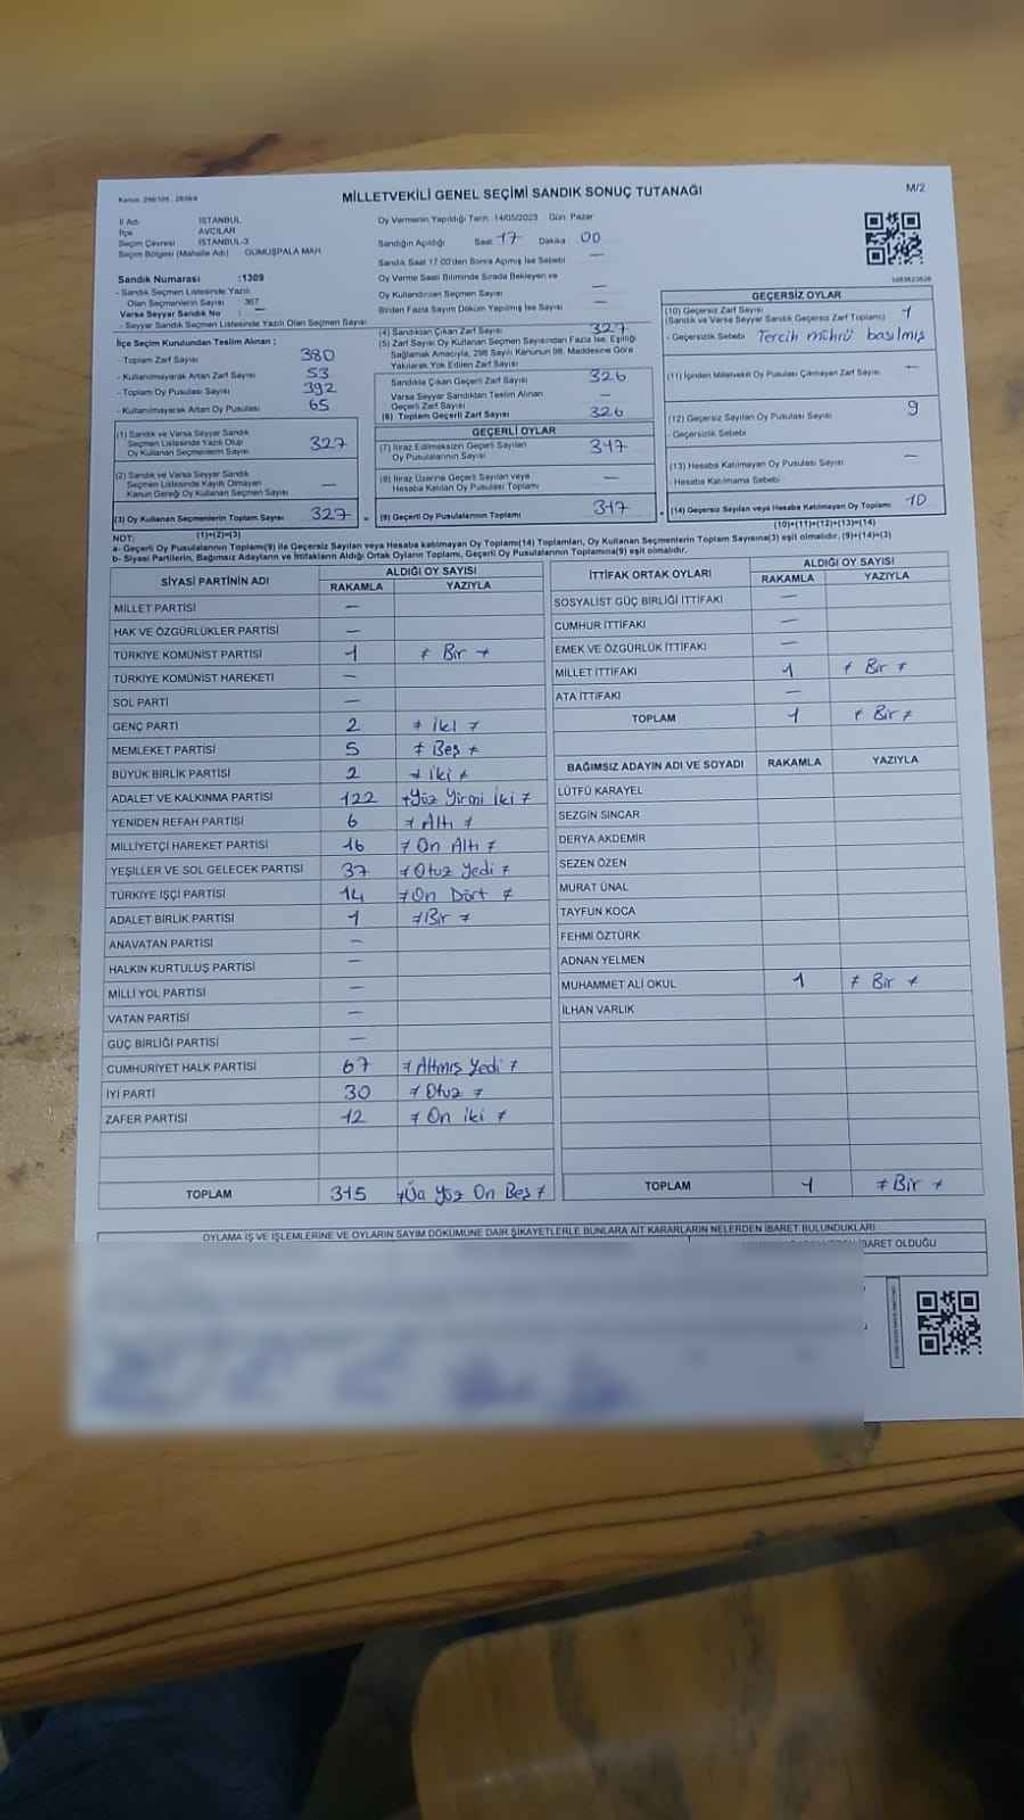 MİLLETVEKİLİ GENEL SEÇİMİ SANDIK SONUÇ TUTANAĞI
M/2
İl Adı İSTANBUL
İlçe AVCILAR
Seçim Çevresi İSTANBUL-3
Seçim Bölgesi (Mahalle Adı) GÜMÜŞPALA MAH.
Sandık Numarası :1309
- Sandık Seçmen Listesinde Yazılı
Olan Seçmenlerin Sayısı 367
Varsa Seyyar Sandık No : —
- Seyyar Sandık Seçmen Listesinde Yazılı Olan Seçmen Sayısı
İlçe Seçim Kurulundan Teslim Alınan ;
- Toplam Zarf Sayısı 380
- Kullanılmayarak Artan Zarf Sayısı 53
- Toplam Oy Pusulası Sayısı 392
- Kullanılmayarak Artan Oy Pusulası 65
(1) Sandık ve Varsa Seyyar Sandık
Seçmen Listesinde Yazılı Olup
Oy Kullanan Seçmenlerin Sayısı 327
(2) Sandık ve Varsa Seyyar Sandık
Seçmen Listesinde Kayıtlı Olmayan
Kanun Gereği Oy Kullanan Seçmen Sayısı —
(3) Oy Kullanan Seçmenlerin Toplam Sayısı 327
(1)+(2)=(3)
Oy Vermenin Yapıldığı Tarih :14/05/2023 Gün: Pazar
Sandığın Açıldığı Saat 17 Dakika 00
Sandık Saat 17.00'den Sonra Açılmış İse Sebebi —
Oy Verme Saati Bitiminde Sırada Bekleyen ve
Oy Kullandırılan Seçmen Sayısı —
Birden Fazla Sayım Döküm Yapılmış İse Sayısı —
(4) Sandıktan Çıkan Zarf Sayısı 327
(5) Zarf Sayısı Oy Kullanan Seçmen Sayısından Fazla İse, Eşitliği
Sağlamak Amacıyla, 298 Sayılı Kanunun 98. Maddesine Göre
Yakılarak Yok Edilen Zarf Sayısı —
Sandıkta Çıkan Geçerli Zarf Sayısı 326
Varsa Seyyar Sandıktan Teslim Alınan
Geçerli Zarf Sayısı —
(6) Toplam Geçerli Zarf Sayısı 326
GEÇERLİ OYLAR
(7) İtiraz Edilmeksizin Geçerli Sayılan
Oy Pusulalarının Sayısı 317
(8) İtiraz Üzerine Geçerli Sayılan veya
Hesaba Katılan Oy Pusulası Toplamı —
(9) Geçerli Oy Pusulalarının Toplamı 317
GEÇERSİZ OYLAR
(10) Geçersiz Zarf Sayısı
(Sandık ve Varsa Seyyar Sandık Geçersiz Zarf Toplamı) 1
- Geçersizlik Sebebi Tercih mührü basılmış
(11) İçinden Milletvekili Oy Pusulası Çıkmayan Zarf Sayısı —
(12) Geçersiz Sayılan Oy Pusulası Sayısı 9
- Geçersizlik Sebebi
(13) Hesaba Katılmayan Oy Pusulası Sayısı —
- Hesaba Katılmama Sebebi
(14) Geçersiz Sayılan veya Hesaba Katılmayan Oy Toplamı 10
(10)+(11)+(12)+(13)=(14)
NOT:
a- Geçerli Oy Pusulalarının Toplamı(9) ile Geçersiz Sayılan veya Hesaba katılmayan Oy Toplamı(14) Toplamları, Oy Kullanan Seçmenlerin Toplam Sayısına(3) eşit olmalıdır. (9)+(14)=(3)
b- Siyasi Partilerin, Bağımsız Adayların ve İttifakların Aldığı Ortak Oyların Toplamı, Geçerli Oy Pusulalarının Toplamına(9) eşit olmalıdır.
SİYASİ PARTİNİN ADI ALDIĞI OY SAYISI
RAKAMLA YAZIYLA
MİLLET PARTİSİ —
HAK VE ÖZGÜRLÜKLER PARTİSİ —
TÜRKİYE KOMÜNİST PARTİSİ 1 Bir
TÜRKİYE KOMÜNİST HAREKETİ —
SOL PARTİ —
GENÇ PARTİ 2 İki
MEMLEKET PARTİSİ 5 Beş
BÜYÜK BİRLİK PARTİSİ 2 İki
ADALET VE KALKINMA PARTİSİ 122 Yüz Yirmi İki
YENİDEN REFAH PARTİSİ 6 Altı
MİLLİYETÇİ HAREKET PARTİSİ 16 On Altı
YEŞİLLER VE SOL GELECEK PARTİSİ 37 Otuz Yedi
TÜRKİYE İŞÇİ PARTİSİ 14 On Dört
ADALET BİRLİK PARTİSİ 1 Bir
ANAVATAN PARTİSİ —
HALKIN KURTULUŞ PARTİSİ —
MİLLİ YOL PARTİSİ —
VATAN PARTİSİ —
GÜÇ BİRLİĞİ PARTİSİ —
CUMHURİYET HALK PARTİSİ 67 Altmış Yedi
İYİ PARTİ 30 Otuz
ZAFER PARTİSİ 12 On İki
TOPLAM 315 Üç Yüz On Beş
İTTİFAK ORTAK OYLARI ALDIĞI OY SAYISI
RAKAMLA YAZIYLA
SOSYALİST GÜÇ BİRLİĞİ İTTİFAKI —
CUMHUR İTTİFAKI —
EMEK VE ÖZGÜRLÜK İTTİFAKI —
MİLLET İTTİFAKI 1 Bir
ATA İTTİFAKI —
TOPLAM 1 Bir
BAĞIMSIZ ADAYIN ADI VE SOYADI RAKAMLA YAZIYLA
LÜTFÜ KARAYEL
SEZGİN SİNCAR
DERYA AKDEMİR
SEZEN ÖZEN
MURAT ÜNAL
TAYFUN KOCA
FEHMİ ÖZTÜRK
ADNAN YELMEN
MUHAMMET ALİ OKUL 1 Bir
İLHAN VARLIK
TOPLAM 1 Bir
OYLAMA İŞ VE İŞLEMLERİNE VE OYLARIN SAYIM DÖKÜMÜNE DAİR ŞİKAYETLERLE BUNLARA AİT KARARLARIN NELERDEN İBARET BULUNDUKLARI
İBARET OLDUĞU